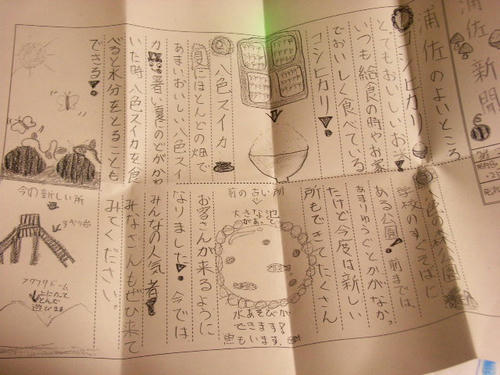 浦佐新聞
浦佐のよいところ
コシヒカリ
とってもおいしいお
いつも給食の時やお家
でおいしく食べている
コシヒカリ!
八色スイカ
夏にほとんどの畑で
あまいおいしい八色スイ
カ!暑い夏にのどがかわ
いた時、八色スイカを食
べると水分をとることも
できる!
学校のすぐそばに
ある公園!前までは、
あまりゆうぐとかがなかっ
たけど今度は新しい
所もできてたくさん
お客さんが来るように
なりました!今では
みんなの人気者!
みなさんもぜひ来て
みてください。
前の古い所
大きな池
水あそびが
できます!
魚もいます。
今の新しい所
すべり台
フワフワドーム
上にたって
とんで
遊びます